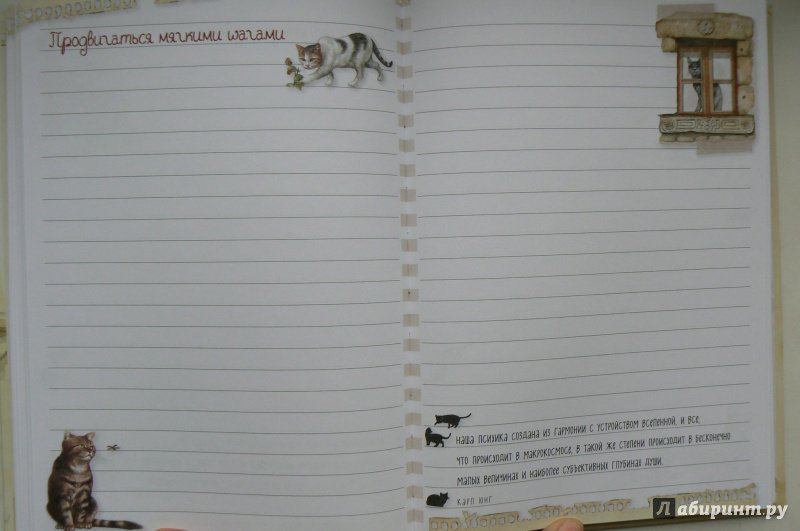 Продвигаться мягкими шагами
наша психика создана из гармонии с устройством вселенной, и все,
что происходит в макрокосмосе, в такой же степени происходит в бесконечно
малых величинах и наиболее субъективных глубинах души.
карл юнг
Лабиринт.ру